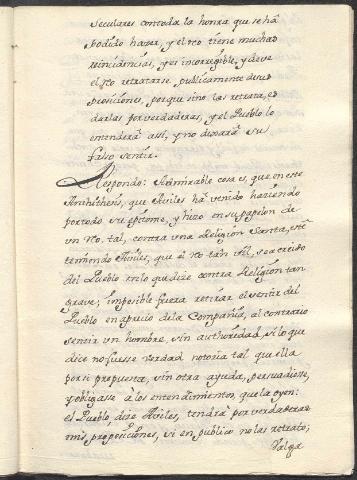 seculares con toda la honra que se há
podido hazer, y el reo tiene muchas
reincidencias, y es incorregible, y deve
el reo retratarse publicamente de sus
proposiciones, porque sino las retrata, es
darlas por verdaderas, y el Pueblo lo
entenderá assi, y no dexará su
falso sentir.
Respondo: Admirable cosa es, que en este
Antihitheus, que Aviles há venido haziendo
por todo su epitome, y hizo en su papelon de
un reo tal, contra una Religion Santa, esté
temiendo Aviles, que el reo tan vil, sea creido
del Pueblo en lo que dize contra Religion tan
grave; imposible fuera retirar el sentir del
Pueblo en aprecio de la Compañia, al contrario
sentir un hombre, sin authoridad, si lo que
dice no fuesse verdad notoria tal que ella
por si propuesta, sin otra ayuda, persuadiesse,
y obligasse à los entendimientos, que la oyen:
el Pueblo, dize Aviles, tendrá por verdaderas
mis proposiciones, si en publico no las retrato;
Valga